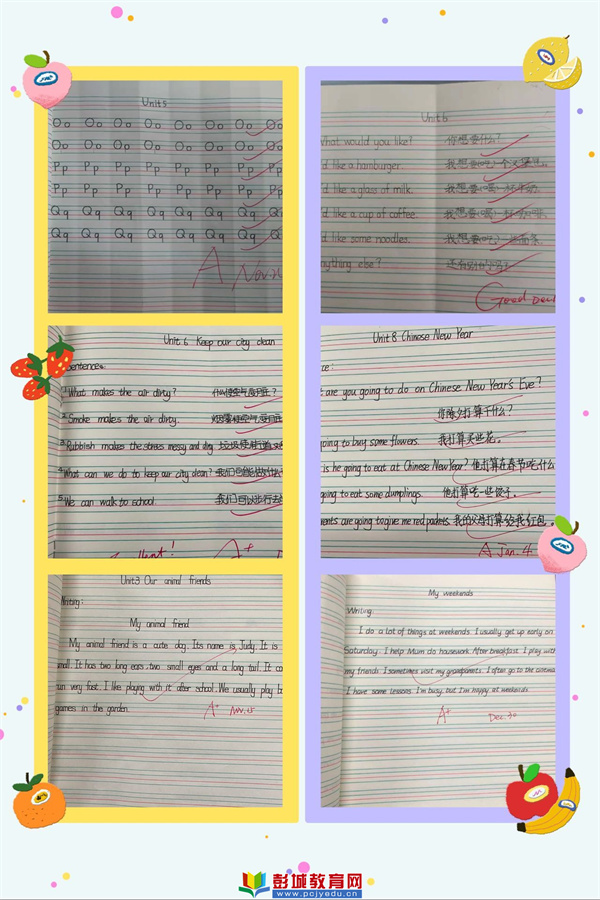 Unit 5
Oo Oo Oo Oo Oo Oo Oo Oo
Oo Oo Oo Oo Oo Oo Oo Oo
Pp Pp Pp Pp Pp Pp Pp Pp
Pp Pp Pp Pp Pp Pp Pp Pp
Qq Qq Qq Qq Qq Qq Qq Qq
Qq Qq Qq Qq Qq Qq Qq Qq
A Nov.
Unit 6
What would you like? 你想要什么?
'd like a hamburger. 我想要(吃)一个汉堡包。
'd like a glass of milk. 我想要(喝)一杯牛奶.
'd like a cup of coffee. 我想要(喝)一杯咖啡.
'd like some noodles. 我想要(吃)一些面条.
nything else? 还有别的吗?
Good Dec.
Unit 6 Keep our city clean
Sentence
1 What makes the air dirty? 什么使空气变脏?
2 Smoke makes the air dirty. 烟雾使空气变脏
3 Rubbish makes the streets messy and dirty. 垃圾使街道又
4 What can we do to keep our city clean? 我们能做什么
5 We can walk to school. 我们可以步行去
Excellent! A+
Unit 8 Chinese New Year
ce:
t are you going to do on Chinese New Year's Eve?
你除夕打算干什么?
going to buy some flowers. 我打算买些花。
is he going to eat at Chinese New Year? 他打算在春节吃什么
going to eat some dumplings. 他打算吃一些饺子.
ents are going to give me red packets. 我的父母打算给我红包。
A Jan. 4
Unit3 Our animal friends
Writing:
My animal friend
My animal friend is a cute dog. Its name is Judy. It is
small. It has two long ears, two small eyes and a long tail. It ca
run very fast. I like playing with it after school. We usually play
games in the garden.
A+ Nov. 15
My weekends
Writing
I do a lot of things at weekends. I usually get up early on
Saturday. I help Mum do housework. After breakfast, I play with
my friends. I sometimes visit my grandparents. I often go to the cinema
I have some lessons. I'm busy, but I'm happy at weekends.
A+ Dec. 30
彭城教育网
www.pcjyedu.cn